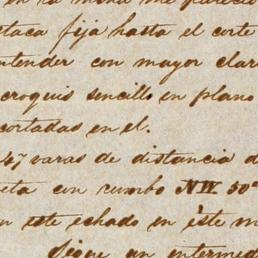 en la mina me pareció
estaca fija hasta el corte
entender con mayor clar
croquis sencillo en plano
cortadas en el.
47 varas de distancia d
eta con rumbo NW 50°
n este echado en éste m
Sigue un intermed